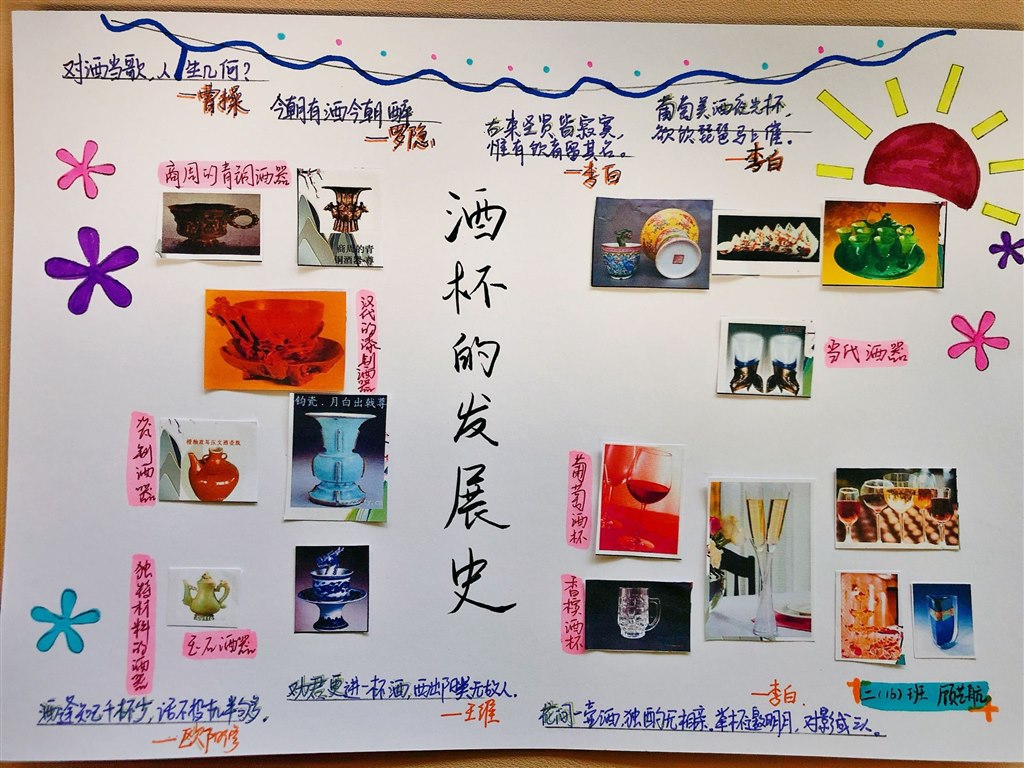 对酒当歌,人生几何?
一曹操
今朝有酒今朝醉
一罗隐
古来圣贤皆寂寞,
惟有饮者留其名。
一李白
葡萄美酒夜光杯,
欲饮琵琶马上催。
一李白
商周的青铜酒器
商周的青
铜酒器·尊
汉代的漆制酒器
钧瓷.月白出戟尊
瓷制酒器
独特材料的酒器
玉石酒器
酒杯的发展史
当代酒器
葡萄酒杯
香槟酒杯
酒逢知己千杯少,话不投机半句多。
一欧阳修
劝君更进一杯酒,西出阳关无故人。
一王维
一李白
花间一壶酒,独酌无相亲.举杯邀明月,对影成三人。
二(16)班